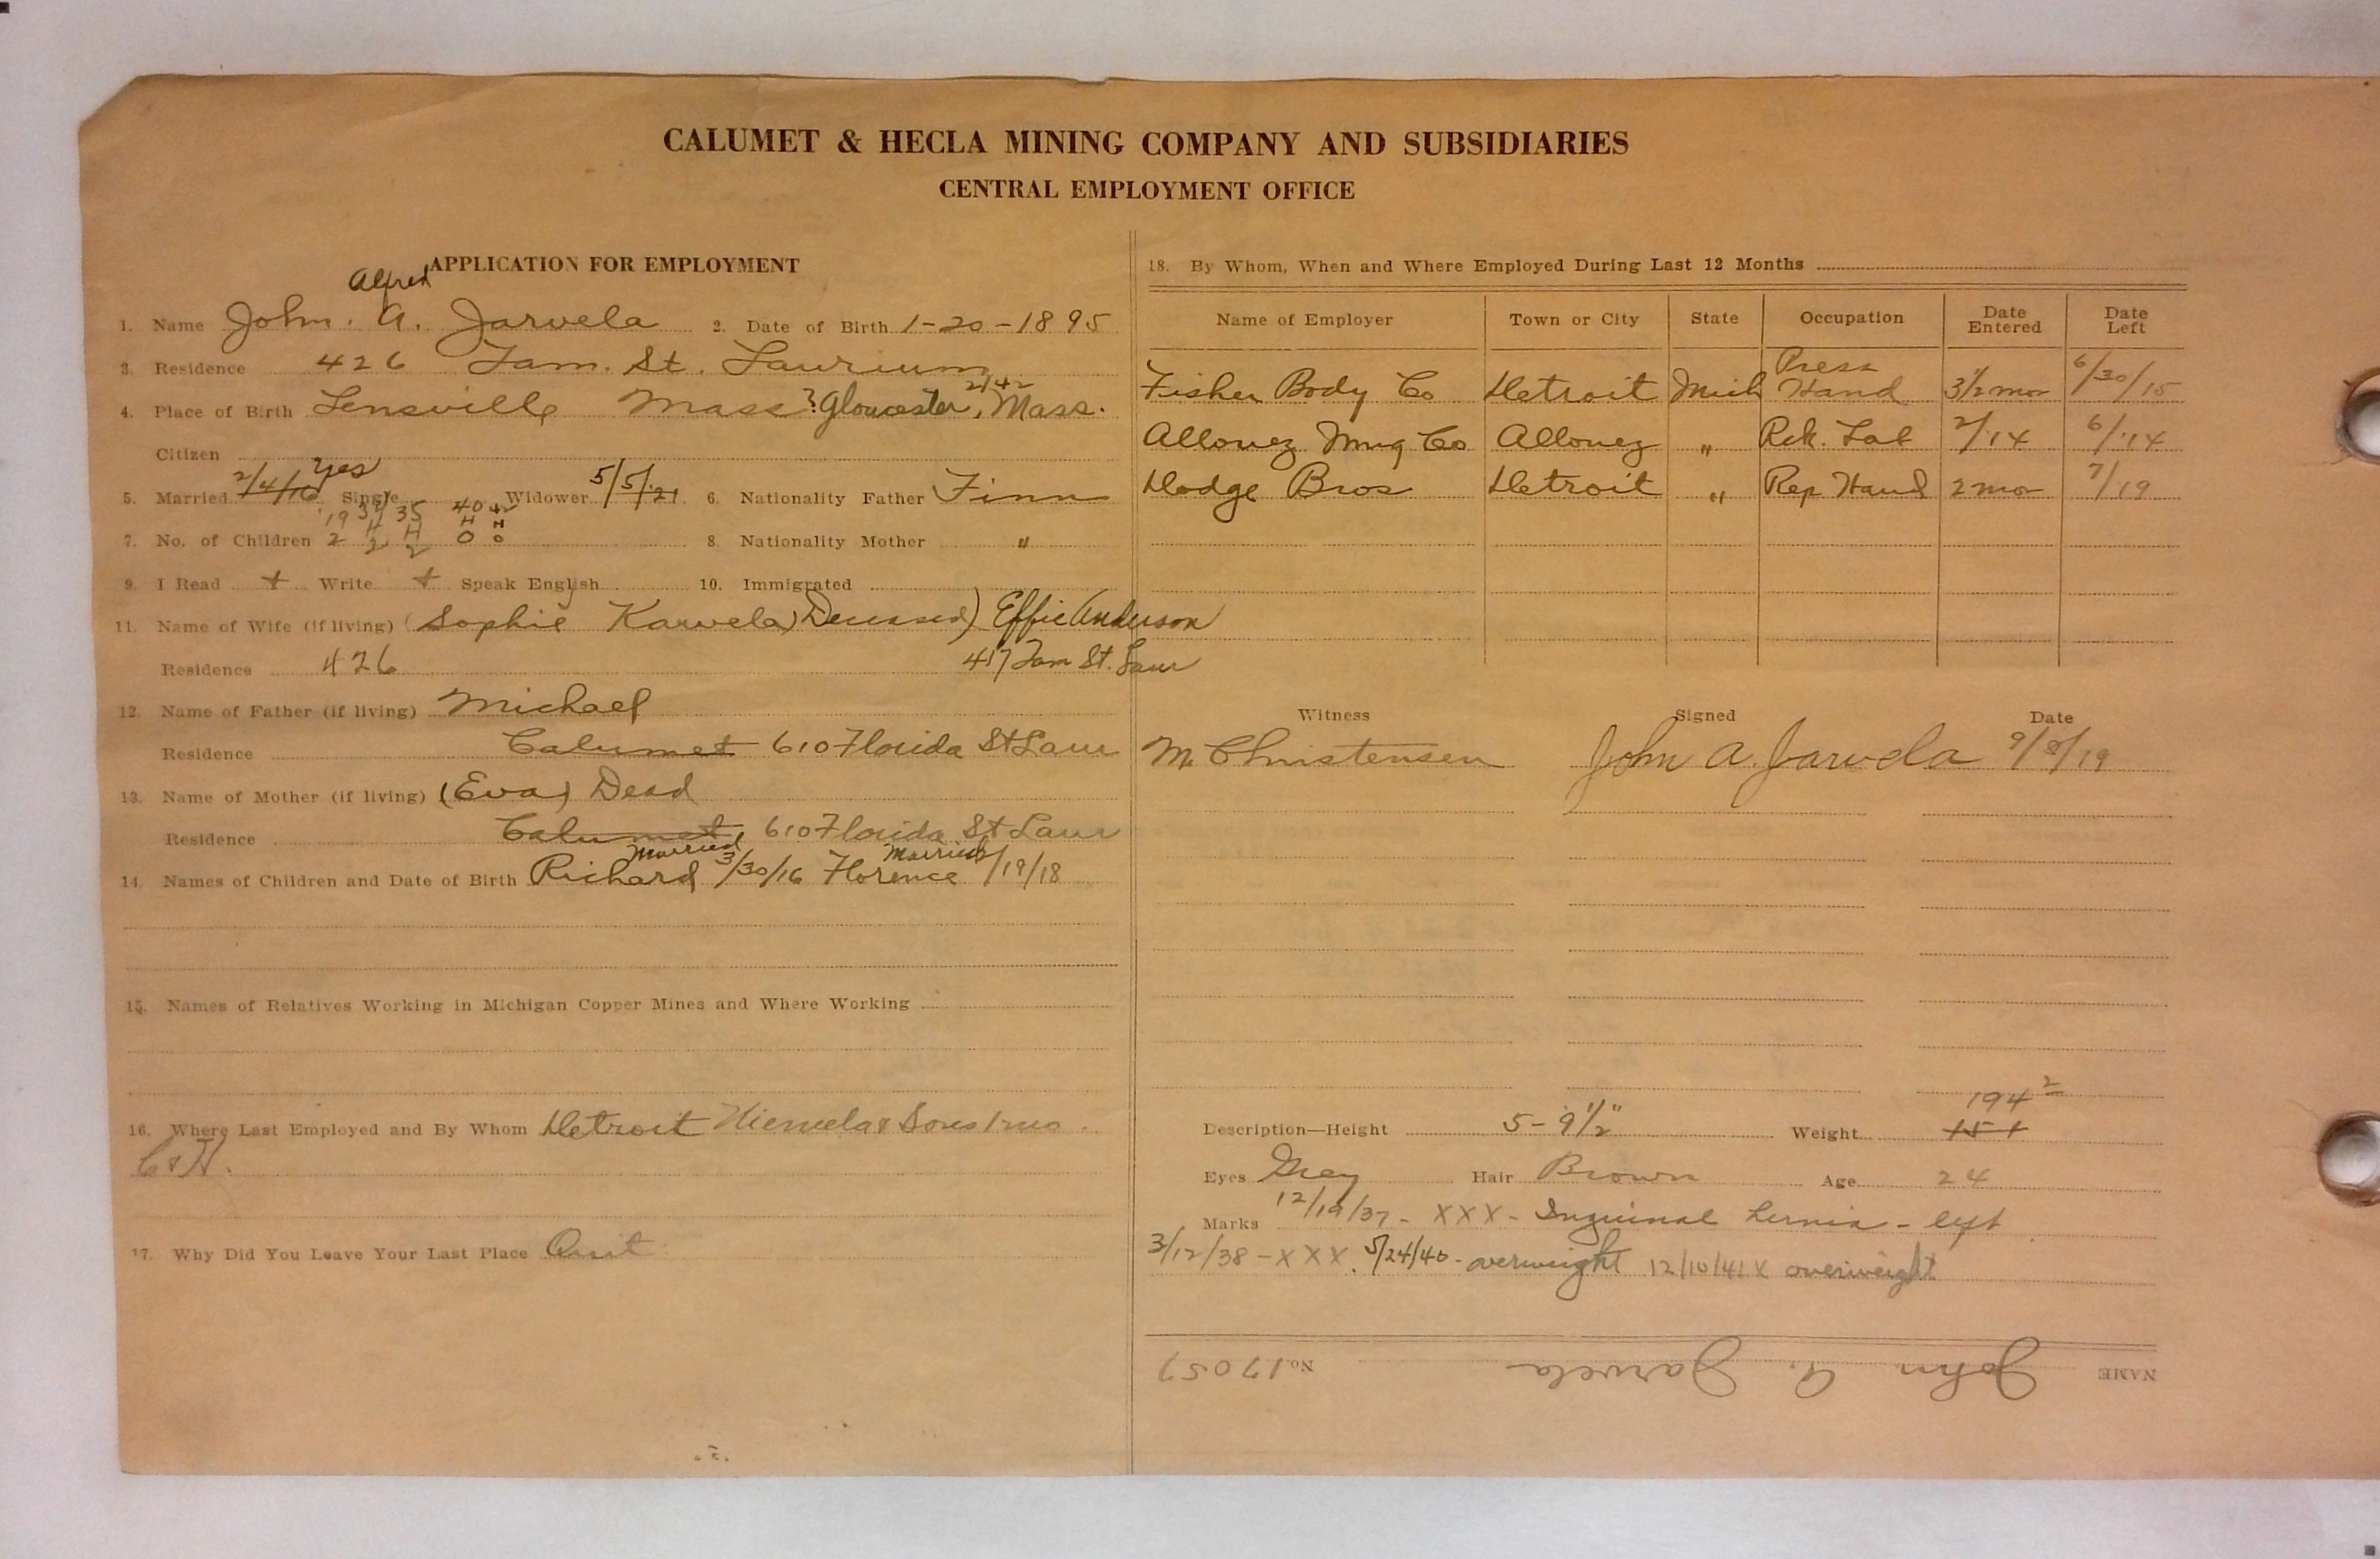 CALUMET & HECLA MINING COMPANY AND SUBSIDIARIES
CENTRAL EMPLOYMENT OFFICE
APPLICATION FOR EMPLOYMENT
Alfred
1. Name John. A. Jarvela 2. Date of Birth 1-20-1895
3. Residence 426 Tam. St. Laurium
4. Place of Birth Lensville Mass? Gloucester, Mass. 2/42
Citizen yes
5. Married 2/4/16 Single Widower 5/5/21 6. Nationality Father Finn
'19 34 35 40 42
H H H H
7. No. of Children 2 2 2 0 0 8. Nationality Mother "
9. I Read + Write + Speak English 10. Immigrated
11. Name of Wife (if living) (Sophie Karvela) Deceased) Effie Anderson
Residence 426 417 Tam St. Laur
12. Name of Father (if living) Michael
Residence Calumet 610 Florida St Laur
13. Name of Mother (if living) (Eva) Dead
Residence Calumet 610 Florida St Laur
Married Married
14. Names of Children and Date of Birth Richard 3/30/16 Florence /19/18
15. Names of Relatives Working in Michigan Copper Mines and Where Working
16. Where Last Employed and By Whom Detroit Niemela & Sons 1 mo.
C & H.
17. Why Did You Leave Your Last Place Quit
18. By Whom, When and Where Employed During Last 12 Months
Name of Employer Town or City State Occupation Date Entered Date Left
Fisher Body Co Detroit Mich Press Hand 3 1/2 mos 6/30/15
Allouez Mng Co Allouez " Rck. Lab 2/14 6/14
Dodge Bros Detroit " Rep Hand 2 mos 7/19
Witness Signed Date
M Christensen John A. Jarvela 9/8/19
194 2
Description—Height 5-9 1/2" Weight 151
Eyes Grey Hair Brown Age 24
Marks 12/19/37 - XXX - Inguinal hernia - left
3/12/38 - XXX. 5/24/40 - overweight 12/10/41 X overweight
NAME John A. Jarvela No. 17057